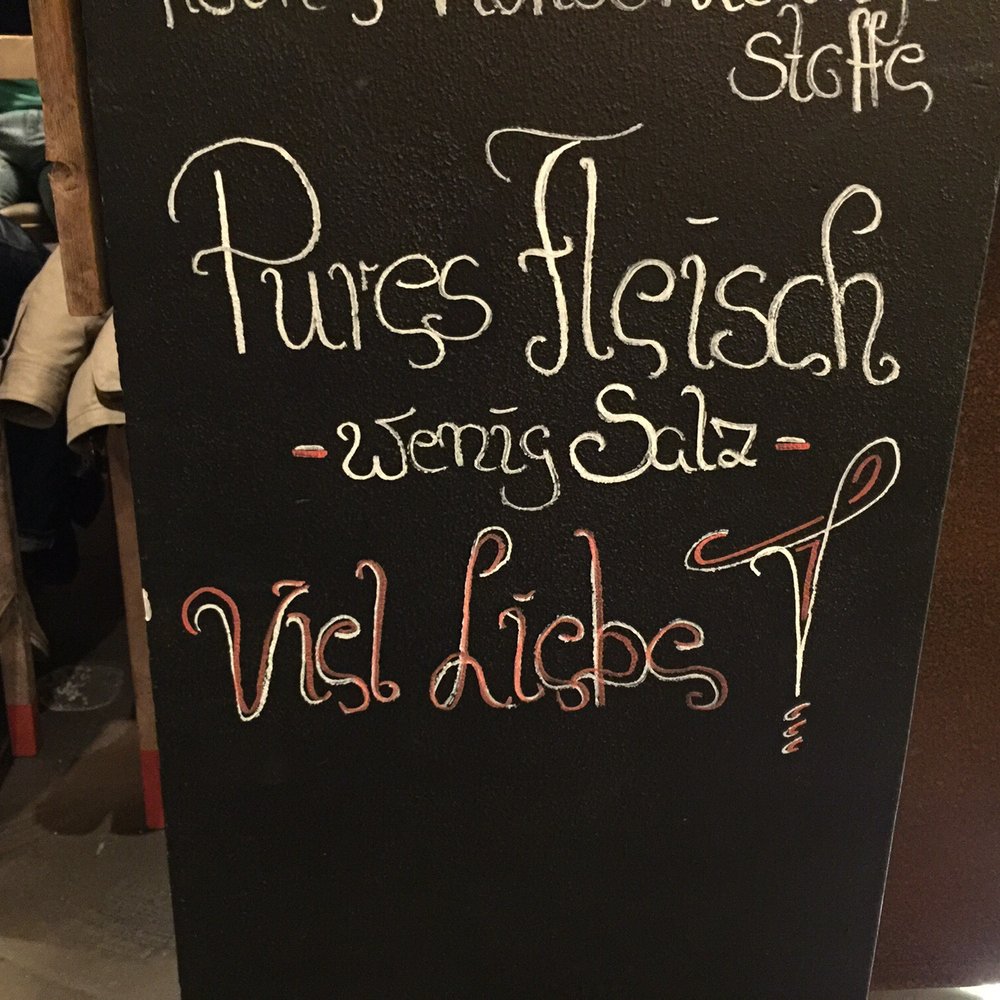 stoffe
Pures Fleisch
- wenig Salz -
Viel Liebe!